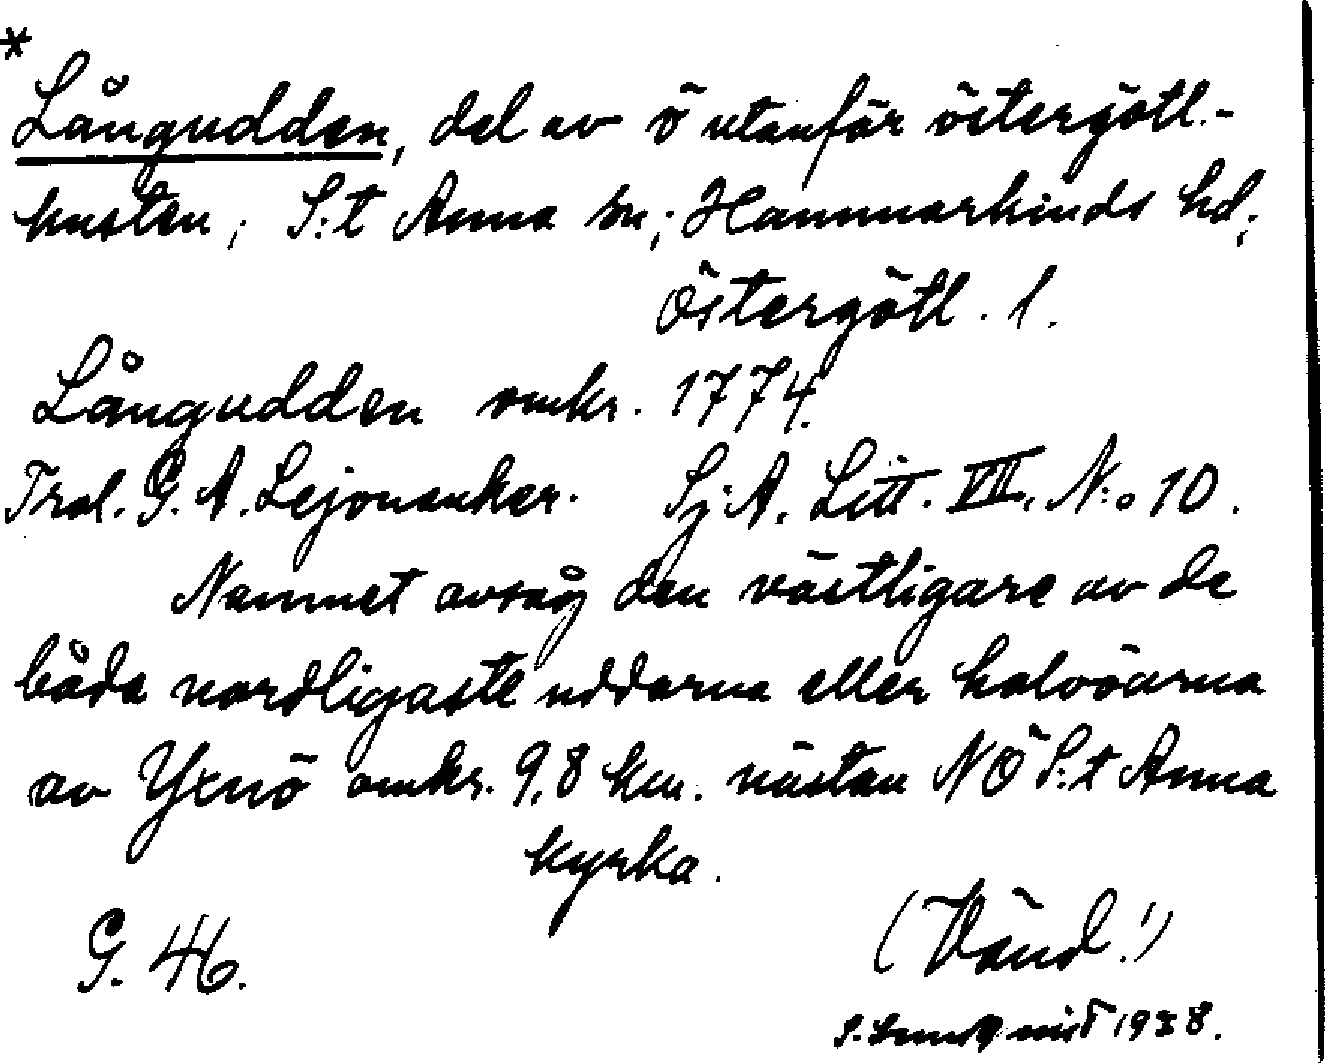 *
Långudden, del av ö utanför östergötl.-
kusten; S:t Anna sn; Hammarkinds hd;
Östergötl. l.
Långudden omkr. 1774.
Trol. G. A. Lejonanker. Sj. A. Litt. VII. N:o 10.
Namnet avsåg den västligare av de
båda nordligaste uddarna eller halvöarna
av Yxnö omkr. 9,8 km. nästan NÖ S:t Anna
kyrka.
G. 46. (Vänd!)
S. Lundqvist 1938.